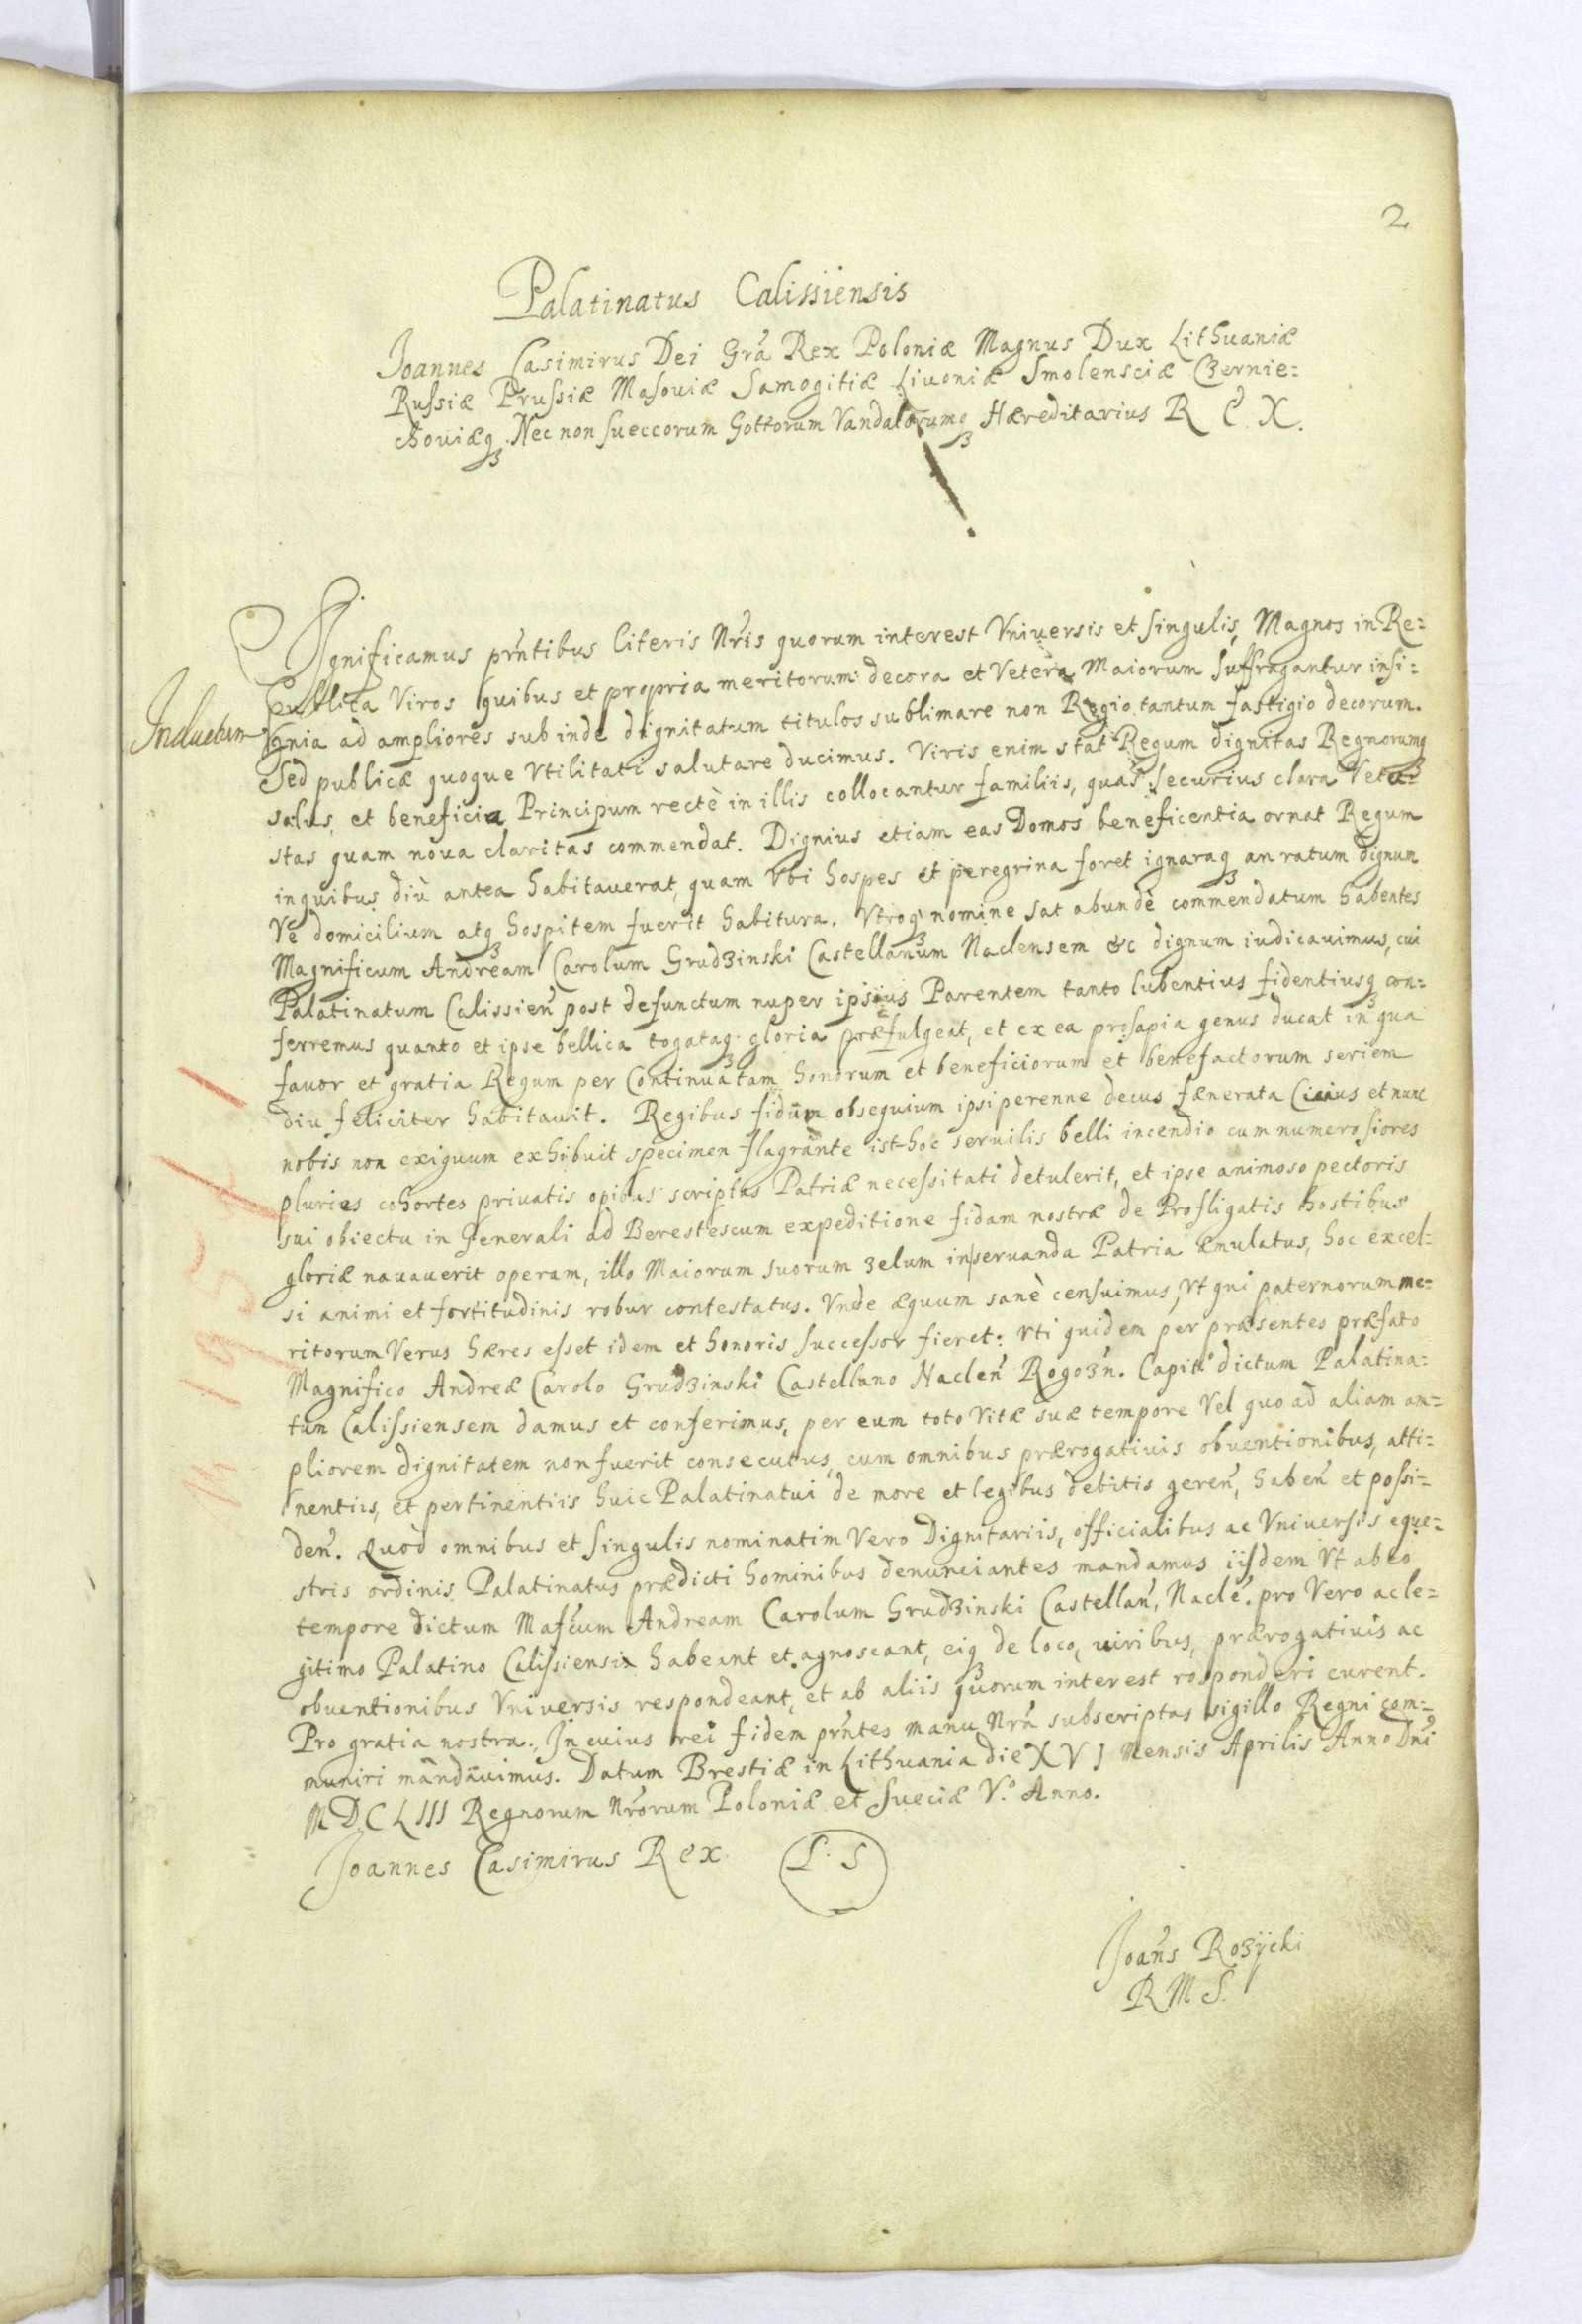 2
Palatinatus Calissiensis
Joannes Casimirus Dei Grã Rex Poloniæ Magnus Dux Lithuaniæ
Russiæ Prussiæ Masouiæ Samogitiæ Liuoniæ Smolensciæ Czernie:
chouiæqȝ Nec non Sueccorum Gottorum Vandalorumqȝ Hæreditarius R E X.
Significamus pr̃ntibus literis Nr̃is quorum interest Vniuersis et singulis, Magnos in Re:
publica Viros quibus et propria meritorum decora et Vetera Maiorum suffragantur insi:
Inductum
gnia ad ampliores sub inde dignitatum titulos sublimare non Regio tantum fastigio decorum.
Sed publicæ quoque Vtilitati salutare ducimus. Viris enim stat Regum dignitas Regnorumqȝ
salus, et beneficia Principum rectè in illis collocantur familiis, quas securius clara Vetu:
stas quam noua claritas commendat. Dignius etiam eas Domos beneficentia ornat Regum
inquibus diù antea habitauerat, quam Vbi hospes et peregrina foret ignaraqȝ an ratum dignum
Vè domicilium atqȝ hospitem fuerit habitura. Vtroqȝ nomine sat abundè commendatum habentes
Magnificum Andream Carolum Grudzinski Castellanum Naclensem &c dignum iudicauimus, cui
Palatinatum Calissien̄ post defunctum nuper ipsius Parentem tanto lubentius fidentiusqȝ con:
ferremus quanto et ipse bellica togataqȝ gloria præfulgeat, et ex ea prosapia genus ducat in qua
fauor et gratia Regum per Continuatam honorum et beneficiorum et benefactorum seriem
diu feliciter habitauit. Regibus fidum obsequium ipsi perenne decus fænerata Cuius et nunc
nobis non exiguum exhibuit specimen flagrante ist-hoc seruilis belli incendio cum numerosiores
pluries cohortes priuatis opibus scriptas Patriæ necessitati detulerit, et ipse animoso pectoris
sui obiectu in Generali ad Berestescum expeditione fidam nostræ de Profligatis hostibus
gloriæ nauauerit operam, illo Maiorum suorum zelum inseruanda Patria æmulatus, hoc excel:
si animi et fortitudinis robur contestatus. Vnde æquum sanè censuimus, Vt qui paternorum me:
ritorum Verus hæres esset idem et honoris successor fieret: Vti quidem per præsentes præfato
Magnifico Andreæ Carolo Grudzinski Castellano Naclen̄ Rogozn̄. Capit̃o dictum Palatina:
tum Calissiensem damus et conferimus, per eum toto Vitæ suæ tempore Vel quo ad aliam am:
pliorem dignitatem non fuerit consecutus, cum omnibus prærogatiuis obuentionibus, atti:
nentiis, et pertinentiis huic Palatinatui de more et legibus debitis geren̄, haben̄ et possi:
den̄. Quod omnibus et singulis nominatim Vero Dignitariis, officialibus ac Vniuersis eque:
stris ordinis Palatinatus prædicti hominibus denunciantes mandamus iisdem Vt ab eo
tempore dictum Mafcum Andream Carolum Grudzinski Castellan̄, Naclē. pro Vero ac le:
gitimo Palatino Calissiensi habeant et agnoscant, eiqȝ de loco, uiribus, prærogatiuis ac
obuentionibus Vniuersis respondeant, et ab aliis quorum interest responderi curent.
Pro gratia nostra. In cuius rei fidem pr̃ntes manu Nr̃a subscriptas sigillo Regni com:
muniri mandauimus. Datum Brestiæ in Lithuania die XVJ Mensis Aprilis Anno Dn̄i
MDCLIII Regnorum Nr̃orum Poloniæ et Sueciæ Vº Anno.
Joannes Casimirus Rex
L. S
Joan̄s Rozycki
R M S.